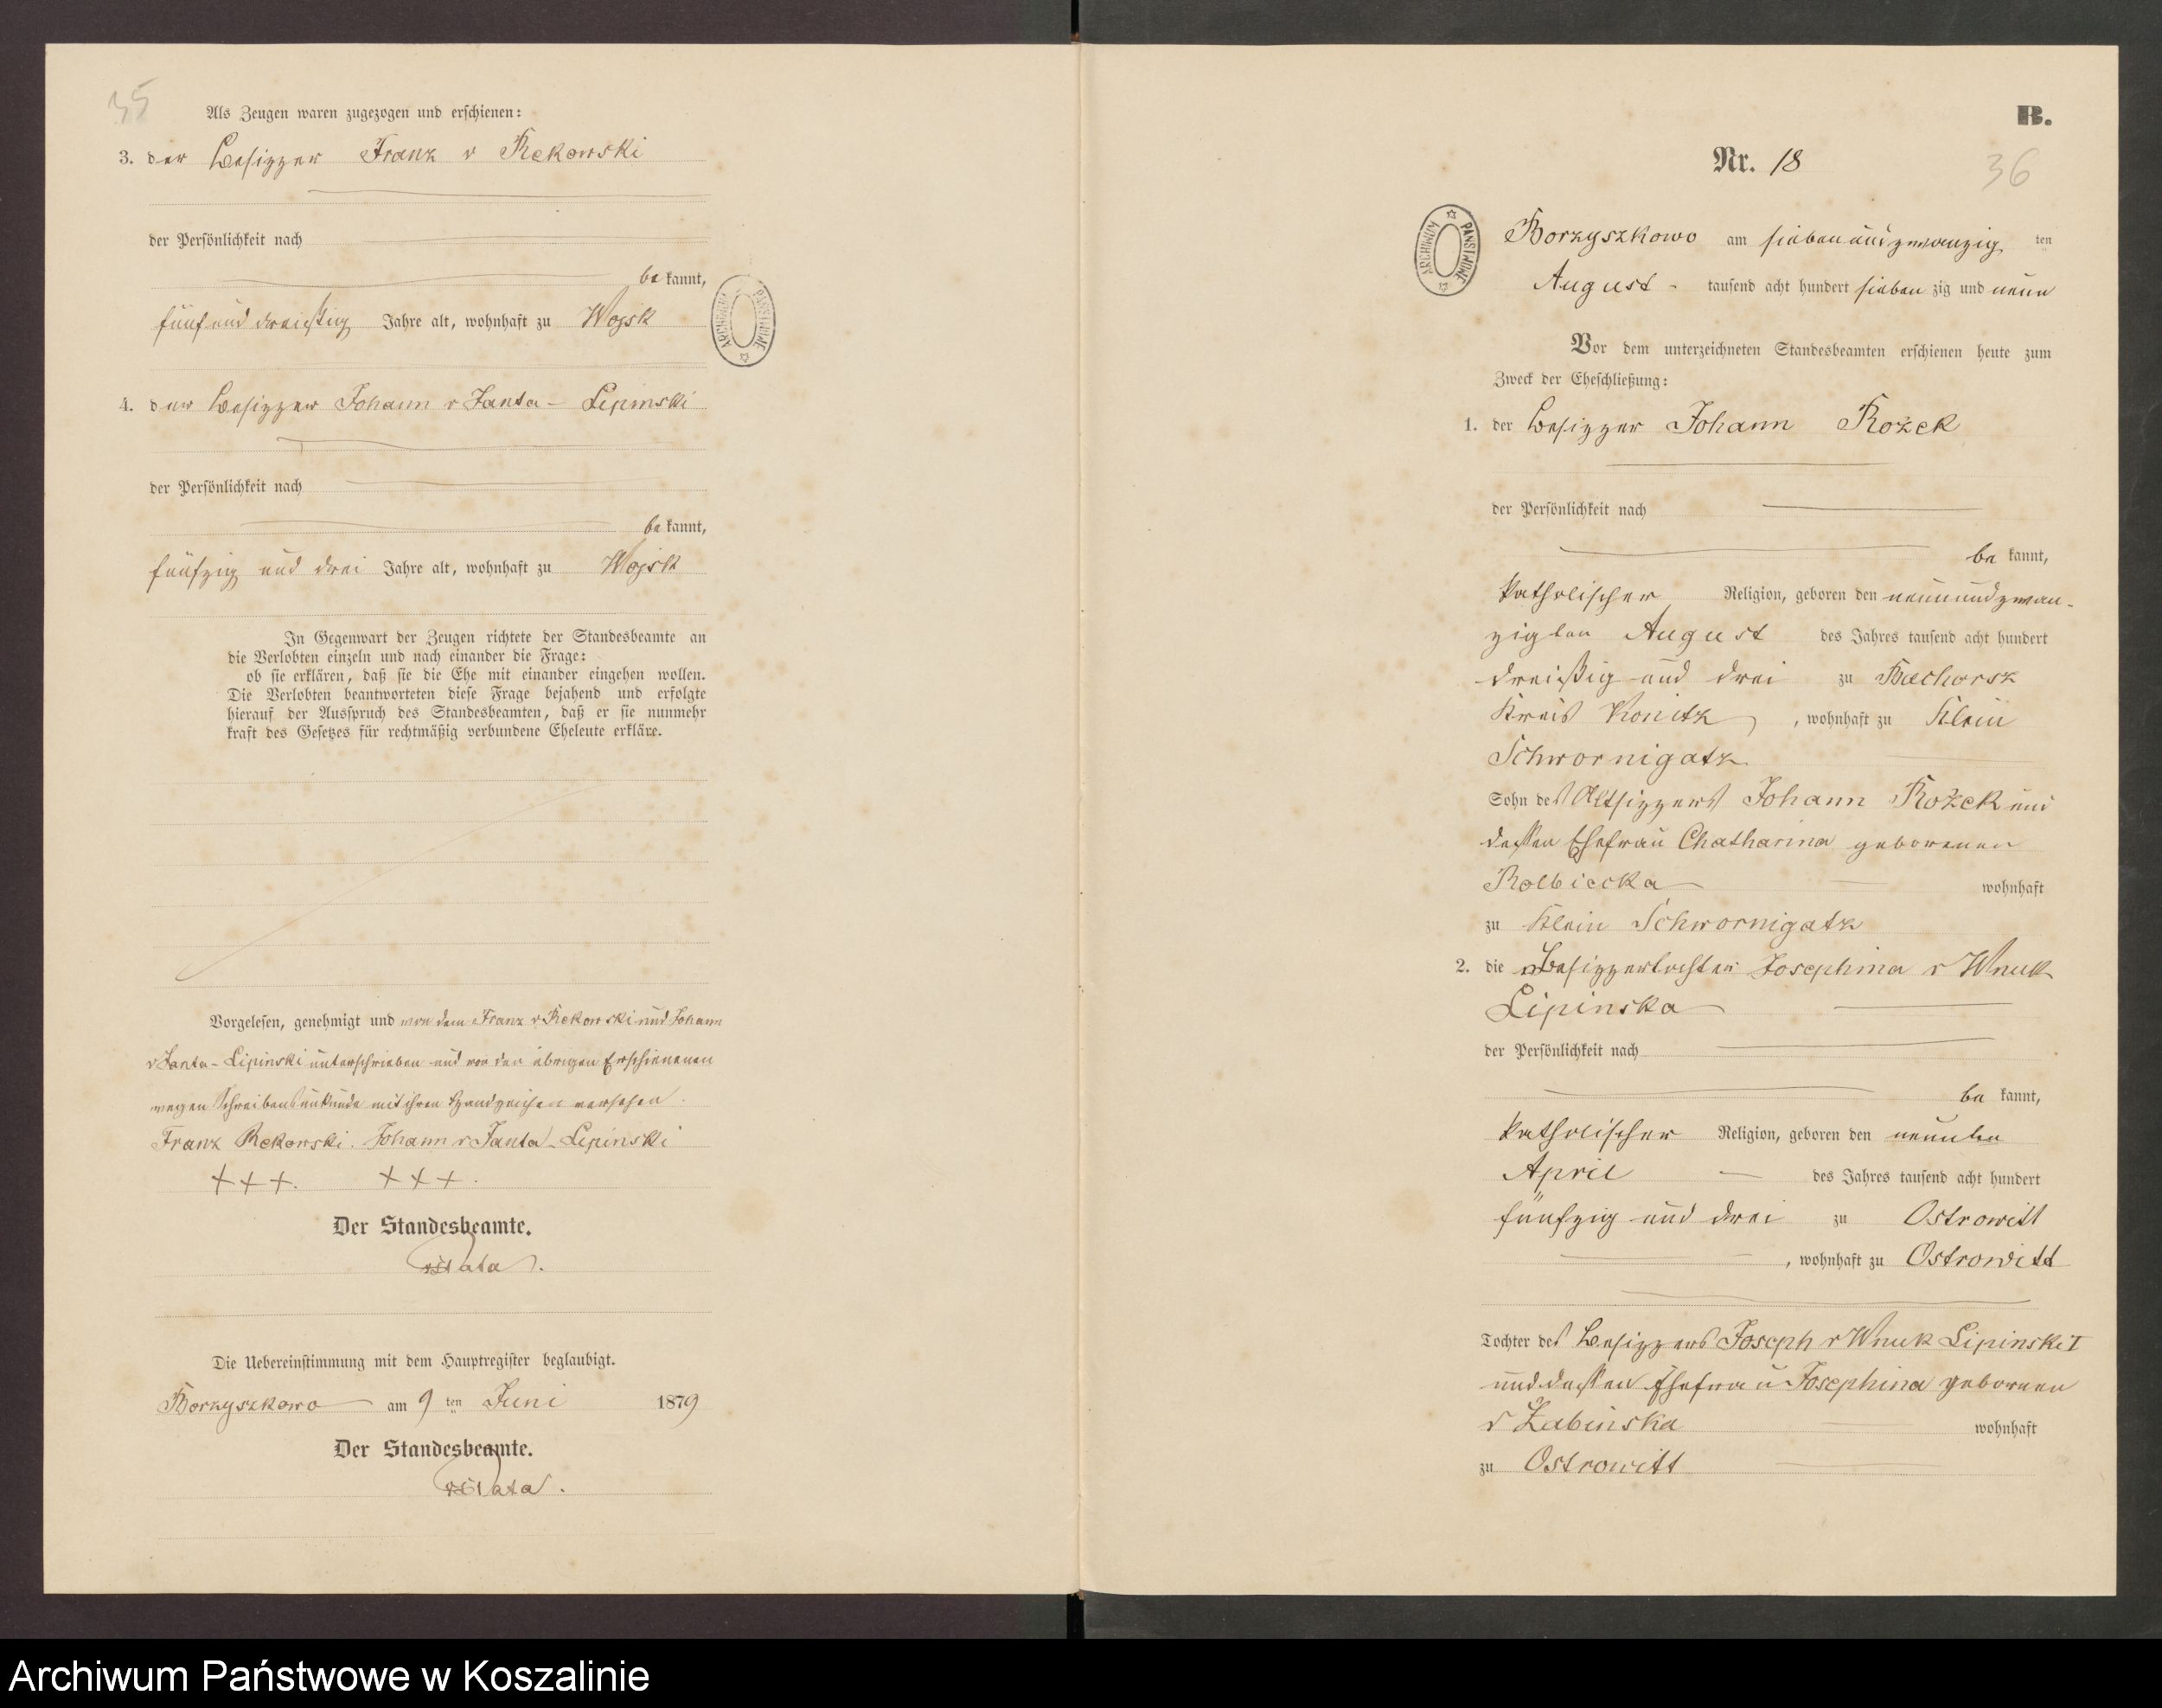 35
Als Zeugen waren zugezogen und erschienen:
3. der Besitzer Franz v Rekowski
der Persönlichkeit nach
be kannt,
fünf und dreißig Jahre alt, wohnhaft zu Wojsk
4. der Besitzer Johann v Janta - Lipinski
der Persönlichkeit nach
be kannt,
fünfzig und drei Jahre alt, wohnhaft zu Wojsk
In Gegenwart der Zeugen richtete der Standesbeamte an
die Verlobten einzeln und nach einander die Frage:
ob sie erklären, daß sie die Ehe mit einander eingehen wollen.
Die Verlobten beantworteten diese Frage bejahend und erfolgte
hierauf der Ausspruch des Standesbeamten, daß er sie nunmehr
kraft des Gesetzes für rechtmäßig verbundene Eheleute erkläre.
Vorgelesen, genehmigt und von dem Franz v Rekowski und Johann
v Janta - Lipinski unterschrieben und von den übrigen Erschienenen
wegen Schreibensunkunde mit ihren Handzeichen versehen.
Franz Rekowski. Johann v Janta - Lipinski
+++. +++.
Der Standesbeamte.
Die Uebereinstimmung mit dem Hauptregister beglaubigt.
Borzyszkowo am 9 ten Juni 1879
Der Standesbeamte.
B.
Nr. 18
36
Borzyszkowo am siebenundzwanzig ten
August - tausend acht hundert sieben zig und neun
Vor dem unterzeichneten Standesbeamten erschienen heute zum
Zweck der Eheschließung:
1. der Besitzer Johann Rożek
der Persönlichkeit nach
be kannt,
katholischer Religion, geboren den neunundzwan-
zigten August des Jahres tausend acht hundert
dreißig und drei zu Bachorsz
Kreis Konitz, wohnhaft zu Klein
Schwornigatz
Sohn des Altsitzers Johann Rożek und
dessen Ehefrau Chatharina geborenen
Kolbiecka wohnhaft
zu Klein Schwornigatz
2. die Besitzertochter Josephina v Wnuk
Lipinska
der Persönlichkeit nach
be kannt,
katholischer Religion, geboren den neunten
April des Jahres tausend acht hundert
fünfzig und drei zu Ostrowitt
, wohnhaft zu Ostrowitt
Tochter des Besitzers Joseph v Wnuk Lipinski I
und dessen Ehefrau Josephina geboren
v Żabinska wohnhaft
zu Ostrowitt
ARCHIWUM PAŃSTWOWE
ARCHIWUM PAŃSTWOWE
Archiwum Państwowe w Koszalinie